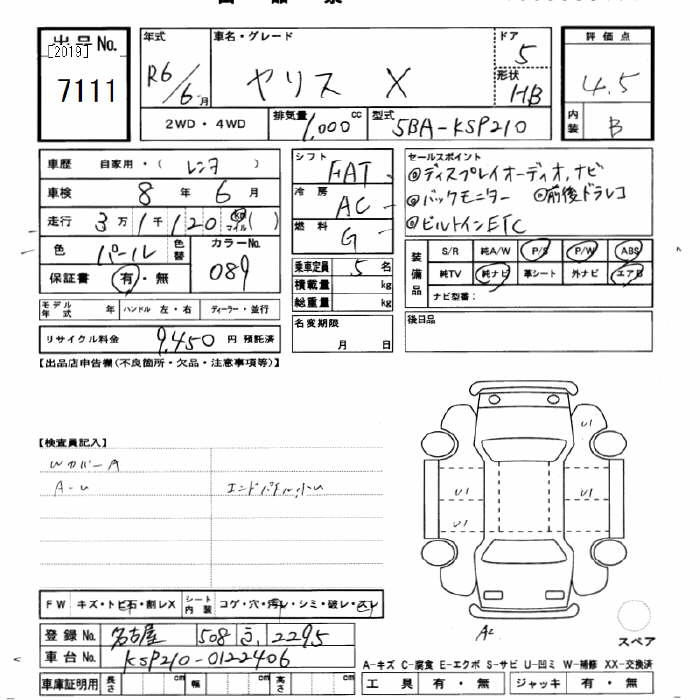 出品No.
[2019]
7111
年式
R6/6月
車名・グレード
ヤリス X
ドア
5
形状
HB
評価点
4.5
内装
B
2WD・4WD
排気量
1,000cc
型式
5BA-KSP210
車歴 自家用・(レンタ)
車検 8年6月
走行 3万1千120 km マイル ( )
色 パール 色替
カラーNo.
089
保証書 有・無
モデル年式 年 ハンドル 左・右 ディーラー・並行
リサイクル料金 9,450円 預託済
シフト FAT
冷房 AC
燃料 G
乗車定員 5名
積載量 kg
総重量 kg
名変期限
月 日
セールスポイント
◎ディスプレイオーディオ,ナビ
◎バックモニター ◎前後ドラレコ
◎ビルトインETC
装備品
S/R 純A/W P/S P/W ABS
純TV 純ナビ 革シート 外ナビ エアB
ナビ型番:
後日品
【出品店申告欄(不良箇所・欠品・注意事項等)】
【検査員記入】
WカバーA
A-U
U1
U1 U1
U1
A2
スペア
FW キズ・トビ石・割レX シート内装 コゲ・穴・汚レ・シミ・破レ・スレ
登録No. 名古屋 508 う 2295
車台No. KSP210-0122406
車庫証明用 長さ cm 幅 cm 高さ cm
A-キズ C-腐食 E-エクボ S-サビ U-凹ミ W-補修 XX-交換済
工具 有・無 ジャッキ 有・無